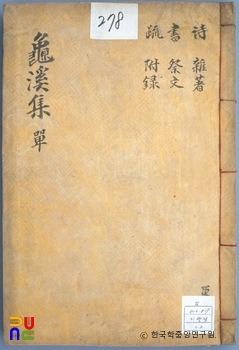 278
詩 雜著
書 祭文
疏 附錄
龜溪集 單
PUNC
ⓒ 한국학중앙연구원